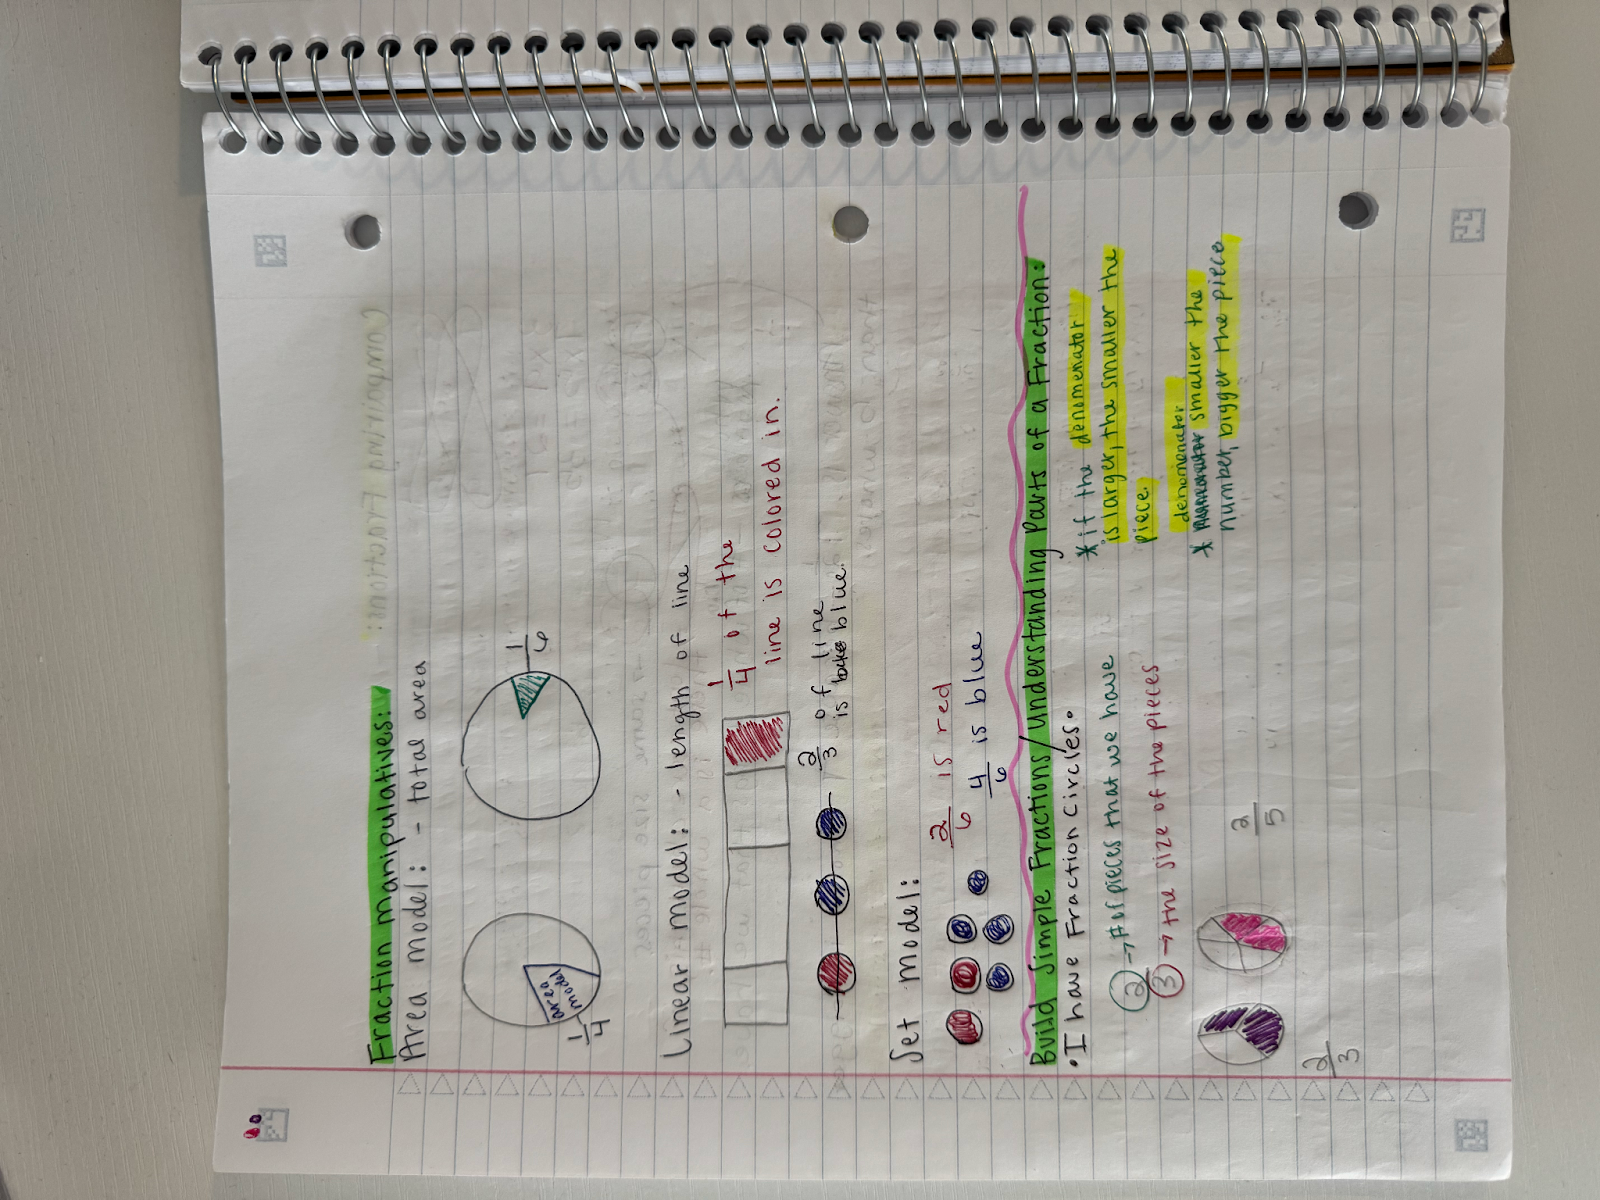 Fraction manipulatives:
Area model: - total area
area
model
1/4
1/6
Linear model: - length of line
1/4 of the
line is colored in.
2/3 of line
is blue.
Set model:
2/6 is red
4/6 is blue
Build Simple Fractions/Understanding Parts of a Fraction:
• I have Fraction Circles.
2 → # of pieces that we have
3 → the size of the pieces
* if the denomenator
is larger, the smaller the
piece.
denomenator
* smaller the
number, bigger the piece
2/3
2/5